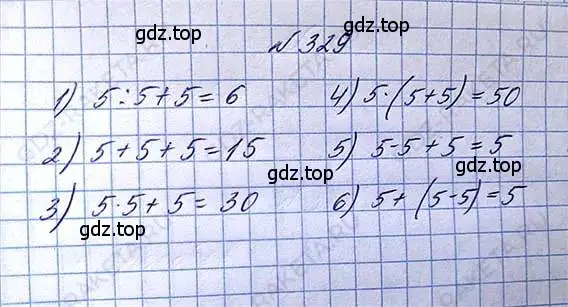 gdz.top
№ 329
gdz.top
1) 5:5+5=6
4) 5·(5+5)=50
gdz.top
2) 5+5+5=15
5) 5-5+5=5
gdz.top
3) 5·5+5=30
6) 5+(5-5)=5
gdz.top
gdz.top